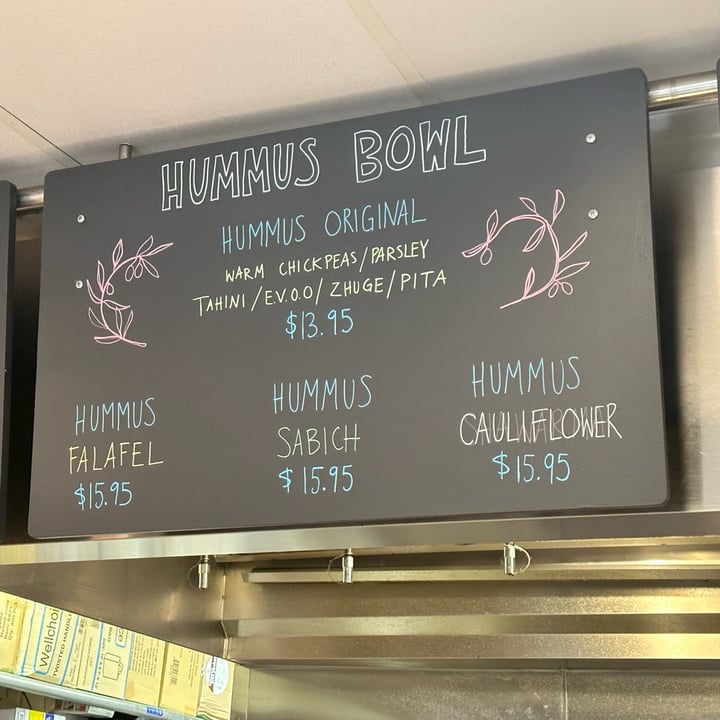 HUMMUS BOWL
HUMMUS ORIGINAL
WARM CHICKPEAS/PARSLEY
TAHINI/E.V.O.O/ZHUGE/PITA
$13.95
HUMMUS
FALAFEL
$15.95
HUMMUS
SABICH
$15.95
HUMMUS
CAULIFLOWER
$15.95
Wellchoi
TWISTED HANDL